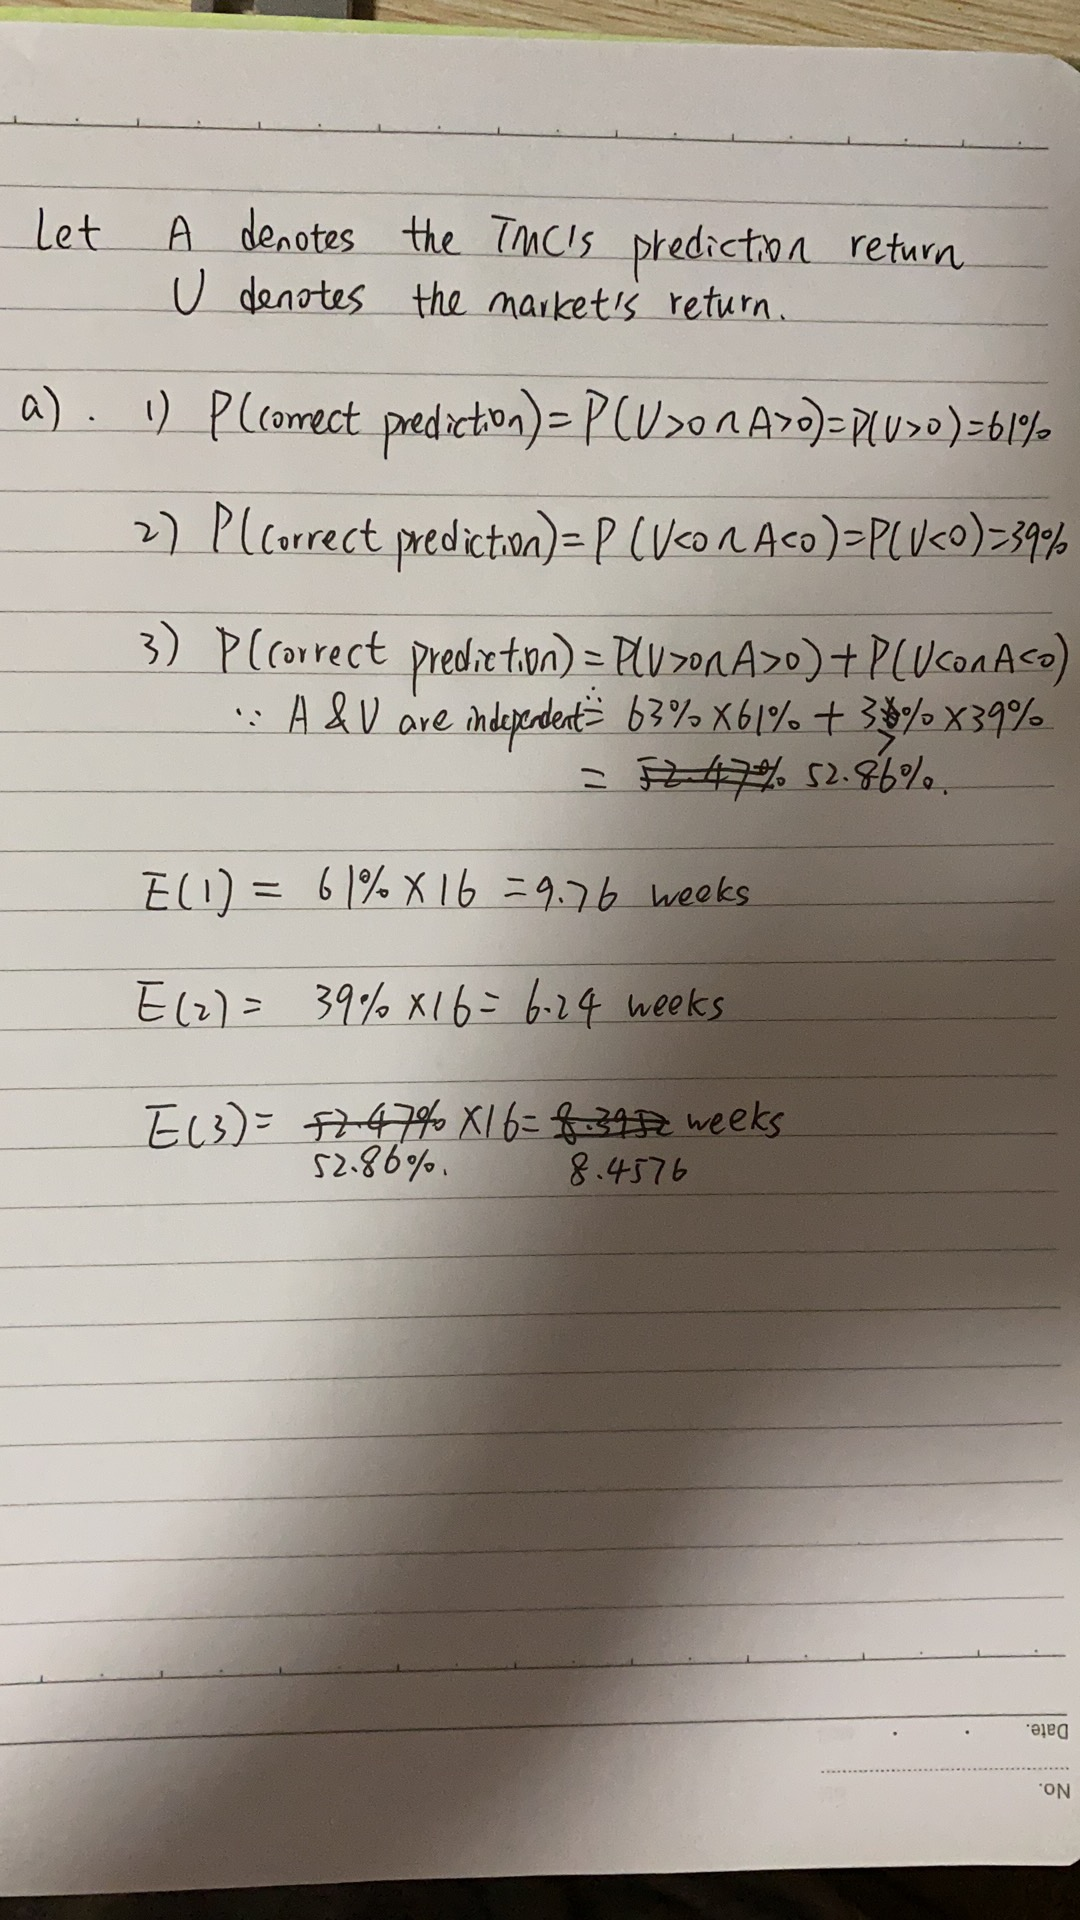 Let A denotes the TMC's prediction return
U denotes the market's return.
a). 1) P(correct prediction)=P(U>0∩A>0)=P(U>0)=61%
2) P(correct prediction)=P(U<0∩A<0)=P(U<0)=39%
3) P(correct prediction)=P(U>0∩A>0)+P(U<0∩A<0)
∵ A & U are independent ∴ = 63%×61% + 37%×39%
= 52.47% 52.86%.
E(1) = 61%×16 =9.76 weeks
E(2) = 39%×16= 6.24 weeks
E(3)= 52.47% ×16= 8.3952 weeks
52.86%. 8.4576
Date.
No.